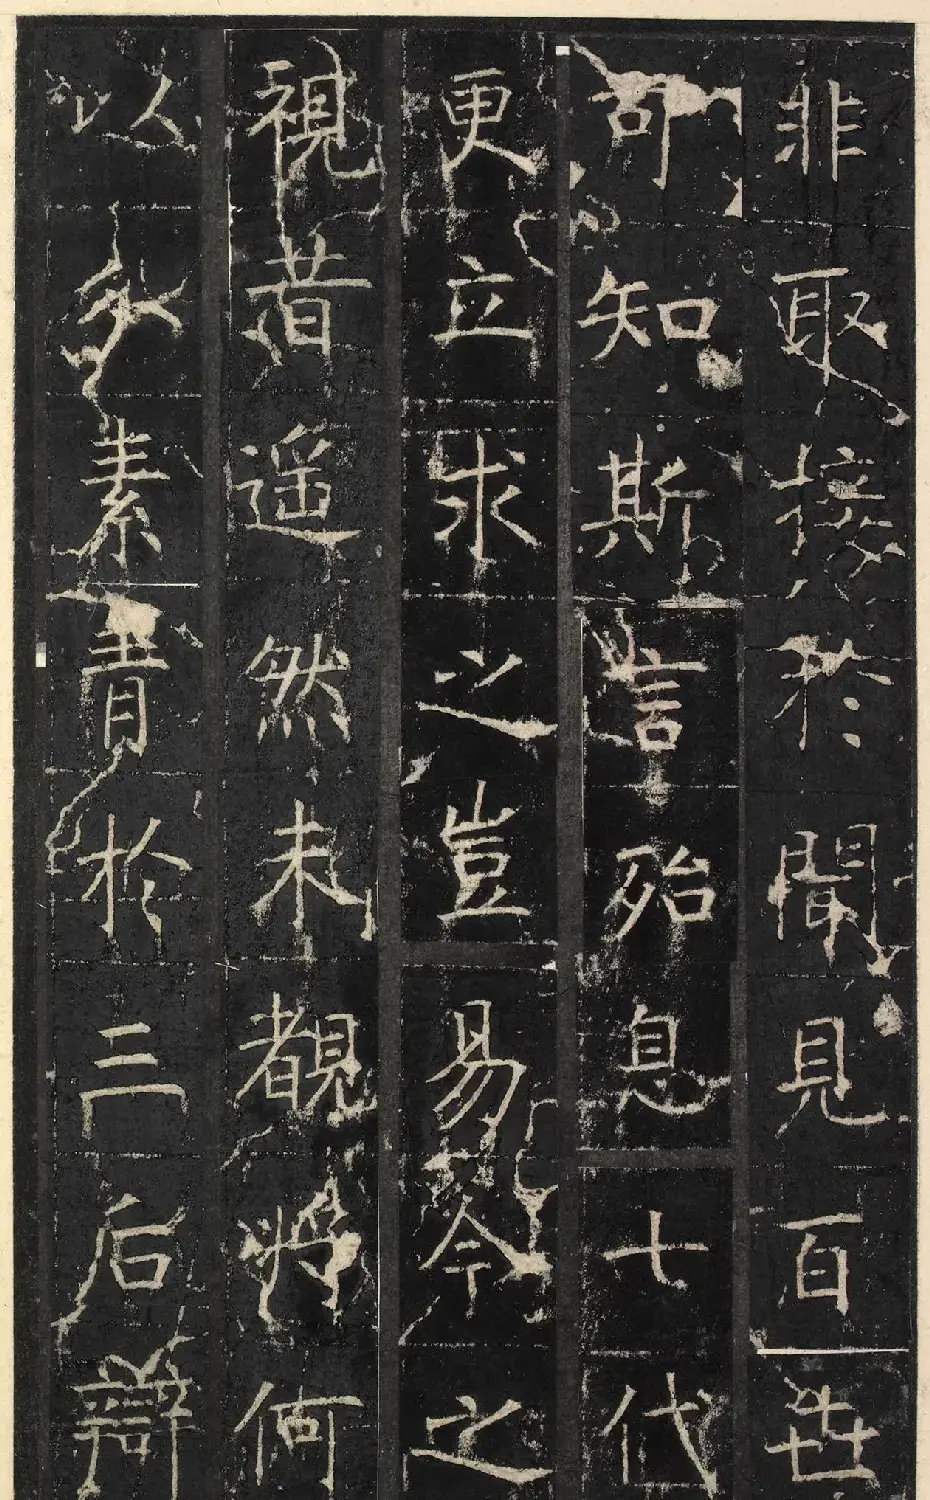 非取接於聞見百世
可知斯言殆息七代
更立求之豈易今之
視昔遥然未覩將何
以 素青於三后辯